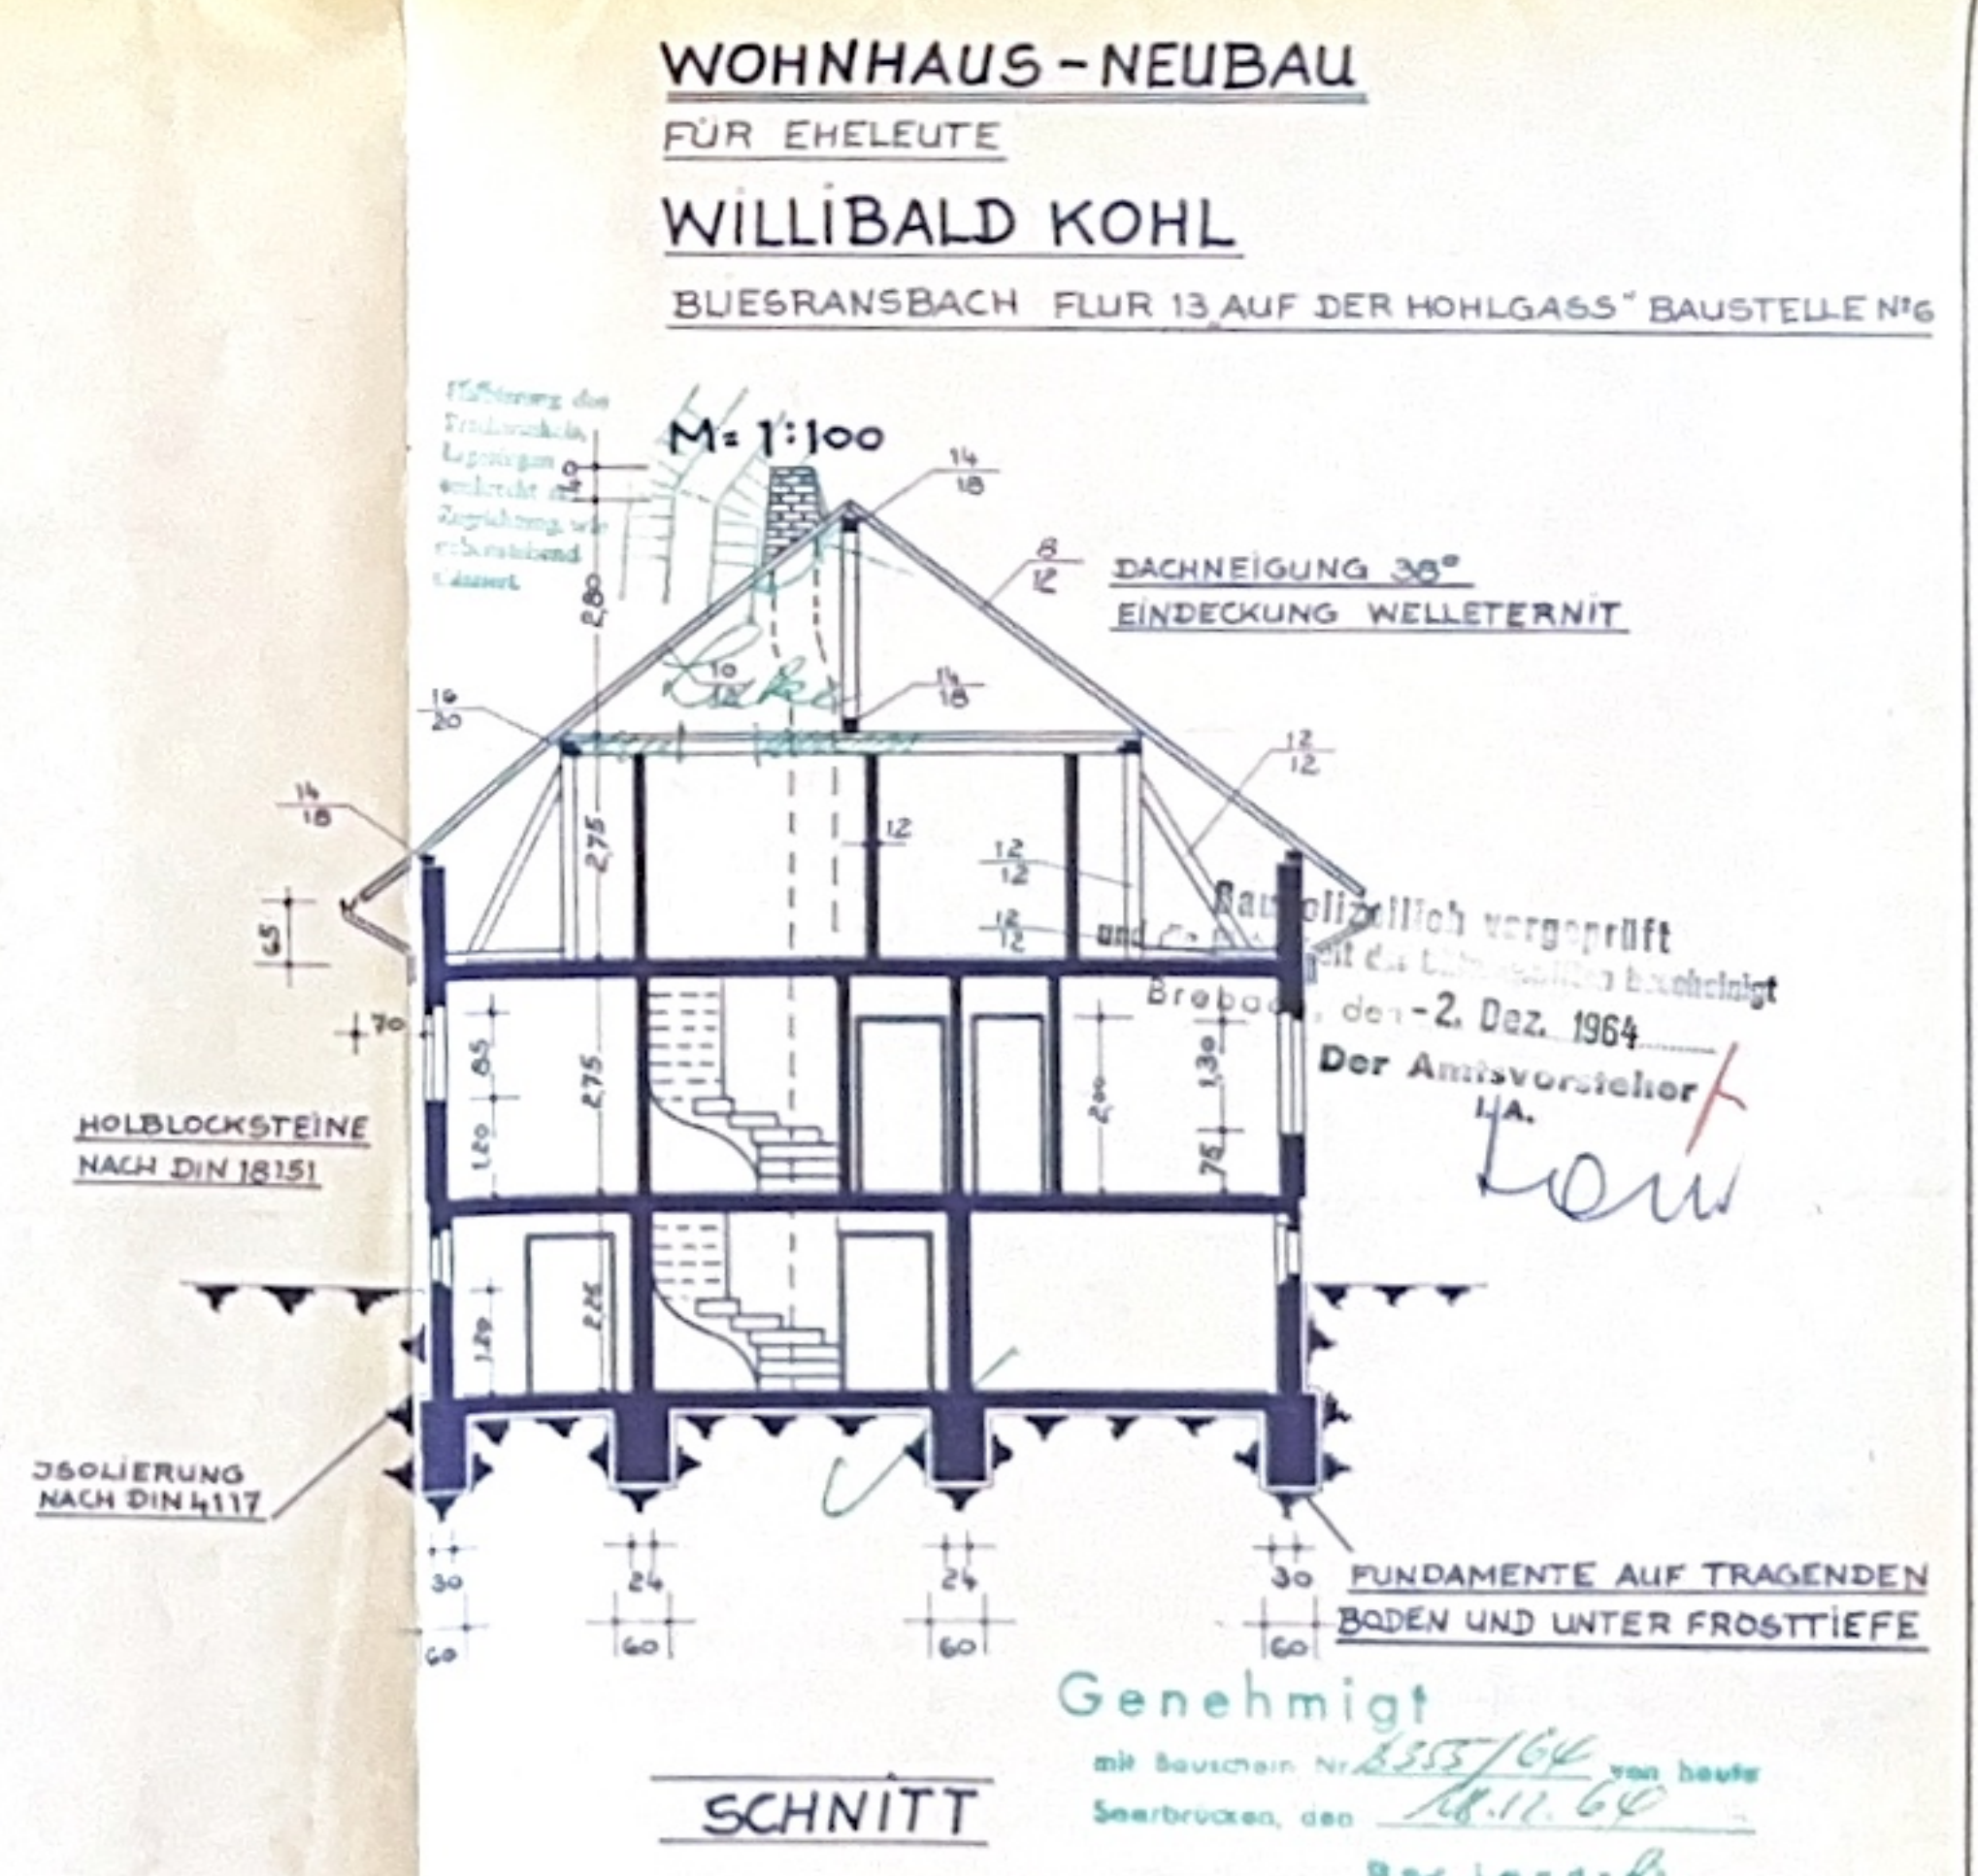 WOHNHAUS-NEUBAU
FÜR EHELEUTE
WILLIBALD KOHL
BLIESRANSBACH FLUR 13 „AUF DER HOHLGASS" BAUSTELLE Nº 6
M= 1:100
40
2,80
14/18
8/12
DACHNEIGUNG 38°
EINDECKUNG WELLETERNIT
14/18
16/20
12/12
14/18
2,75
12
12/12
12/12
65
Baupolizeilich vorgeprüft
und
bescheinigt
Brebach, den -2. Dez. 1964
Der Amtsvorsteher
I.A.
70
85
1,20
2,75
2,00
1,30
75
HOLBLOCKSTEINE
NACH DIN 18151
1,20
2,25
ISOLIERUNG
NACH DIN 4117
30 24 24 30
60 60 60 60
FUNDAMENTE AUF TRAGENDEN
BODEN UND UNTER FROSTTIEFE
Genehmigt
mit Bauschein Nr. 355/64 von heute
Saarbrücken, den 18.12.64
SCHNITT